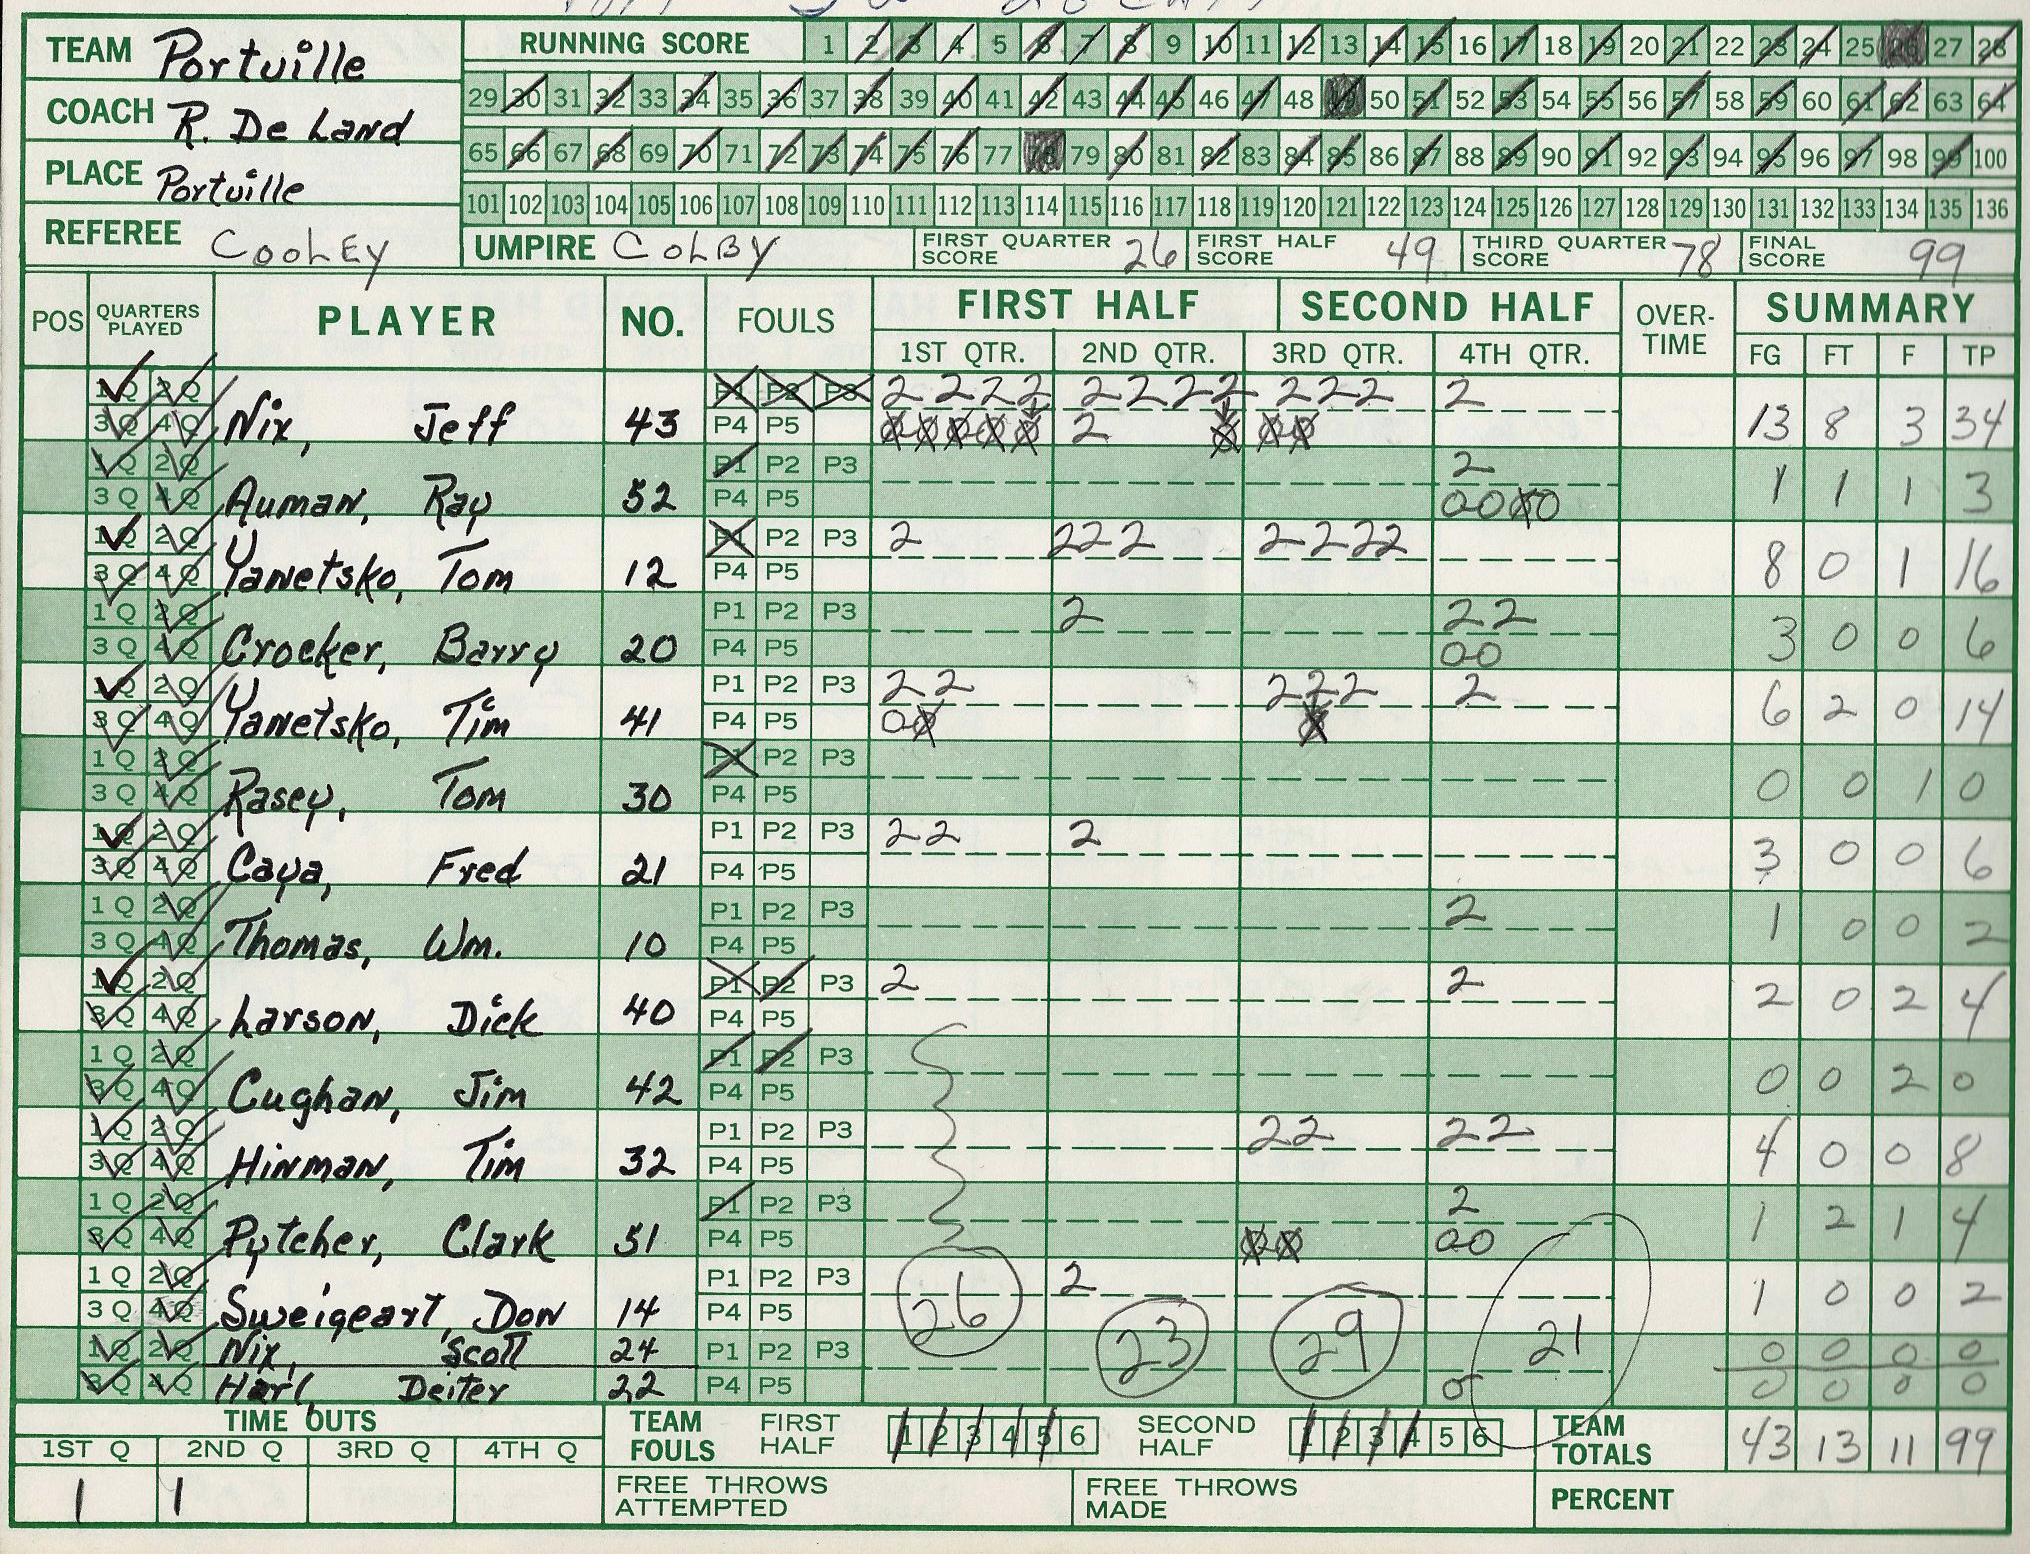 TEAM Portville
RUNNING SCORE 1 2 3 4 5 6 7 8 9 10 11 12 13 14 15 16 17 18 19 20 21 22 23 24 25 26 27 28
29 30 31 32 33 34 35 36 37 38 39 40 41 42 43 44 45 46 47 48 49 50 51 52 53 54 55 56 57 58 59 60 61 62 63 64
COACH R. De Land
65 66 67 68 69 70 71 72 73 74 75 76 77 78 79 80 81 82 83 84 85 86 87 88 89 90 91 92 93 94 95 96 97 98 99 100
PLACE Portville
101 102 103 104 105 106 107 108 109 110 111 112 113 114 115 116 117 118 119 120 121 122 123 124 125 126 127 128 129 130 131 132 133 134 135 136
REFEREE COOLEY UMPIRE COLBY FIRST QUARTER SCORE 26 FIRST HALF SCORE 49 THIRD QUARTER SCORE 78 FINAL SCORE 99
POS QUARTERS PLAYED PLAYER NO. FOULS FIRST HALF SECOND HALF OVER-TIME SUMMARY
1ST QTR. 2ND QTR. 3RD QTR. 4TH QTR. FG FT F TP
1Q 2Q P1 P2 P3 2 2 2 2 2 2 2 2 2 2 2 2
3Q 4Q Nix, Jeff 43 P4 P5 0 0 0 0 0 2 0 0 0 13 8 3 34
1Q 2Q P1 P2 P3 2
3Q 4Q Auman, Ray 52 P4 P5 0 0 0 0 1 1 1 3
1Q 2Q P1 P2 P3 2 2 2 2 2 2 2 2
3Q 4Q Yanetsko, Tom 12 P4 P5 8 0 1 16
1Q 2Q P1 P2 P3 2 2 2
3Q 4Q Crocker, Barry 20 P4 P5 0 0 3 0 0 6
1Q 2Q P1 P2 P3 2 2 2 2 2 2
3Q 4Q Yanetsko, Tim 41 P4 P5 0 0 0 6 2 0 14
1Q 2Q P1 P2 P3
3Q 4Q Rasey, Tom 30 P4 P5 0 0 1 0
1Q 2Q P1 P2 P3 2 2 2
3Q 4Q Caya, Fred 21 P4 P5 3 0 0 6
1Q 2Q P1 P2 P3 2
3Q 4Q Thomas, Wm. 10 P4 P5 1 0 0 2
1Q 2Q P1 P2 P3 2 2
3Q 4Q Larson, Dick 40 P4 P5 2 0 2 4
1Q 2Q P1 P2 P3
3Q 4Q Cughan, Jim 42 P4 P5 0 0 2 0
1Q 2Q P1 P2 P3 2 2 2 2
3Q 4Q Hinman, Tim 32 P4 P5 4 0 0 8
1Q 2Q P1 P2 P3 2
3Q 4Q Pytcher, Clark 51 P4 P5 0 0 0 0 1 2 1 4
1Q 2Q P1 P2 P3 2
3Q 4Q Sweigeart, Don 14 P4 P5 26 23 29 21 1 0 0 2
1Q 2Q Nix, Scott 24 P1 P2 P3 0 0 0 0
3Q 4Q Harl, Deiter 22 P4 P5 0 0 0 0 0
TIME OUTS TEAM FOULS FIRST HALF 1 2 3 4 5 6 SECOND HALF 1 2 3 4 5 6 TEAM TOTALS 43 13 11 99
1ST Q 2ND Q 3RD Q 4TH Q
1 1 FREE THROWS ATTEMPTED FREE THROWS MADE PERCENT